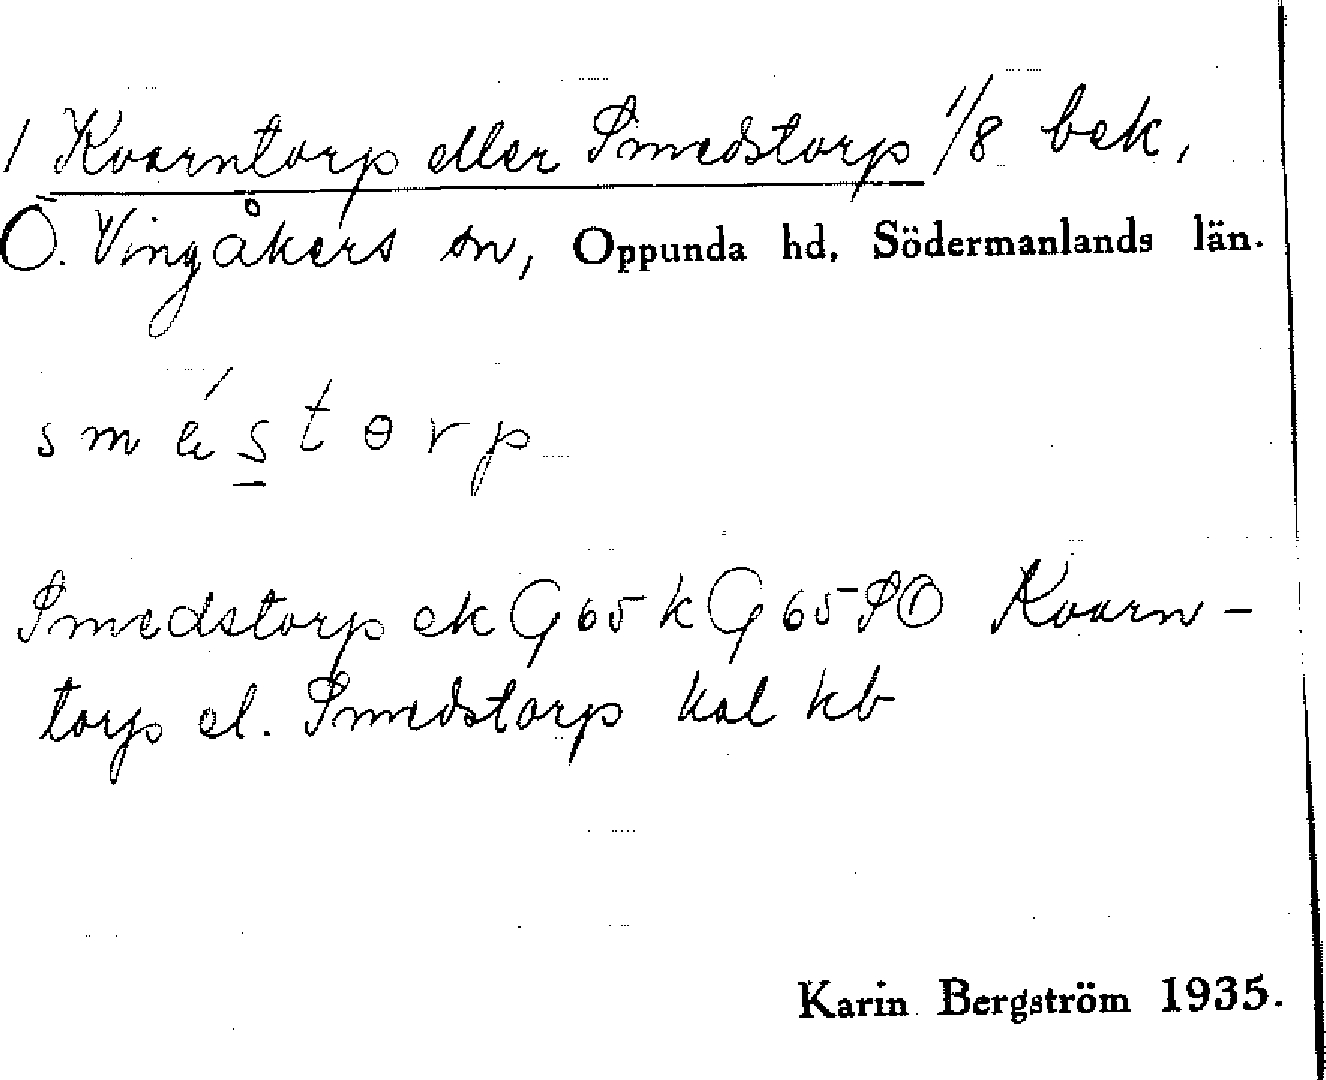 1 Kvarntorp eller Smedstorp 1/8 bek,
Ö. Vingåkers sn, Oppunda hd, Södermanlands län.
sméstɵrp
Smedstorp ek G65 k G65 SO Kvarn-
torp el. Smedstorp kal kb
Karin Bergström 1935.